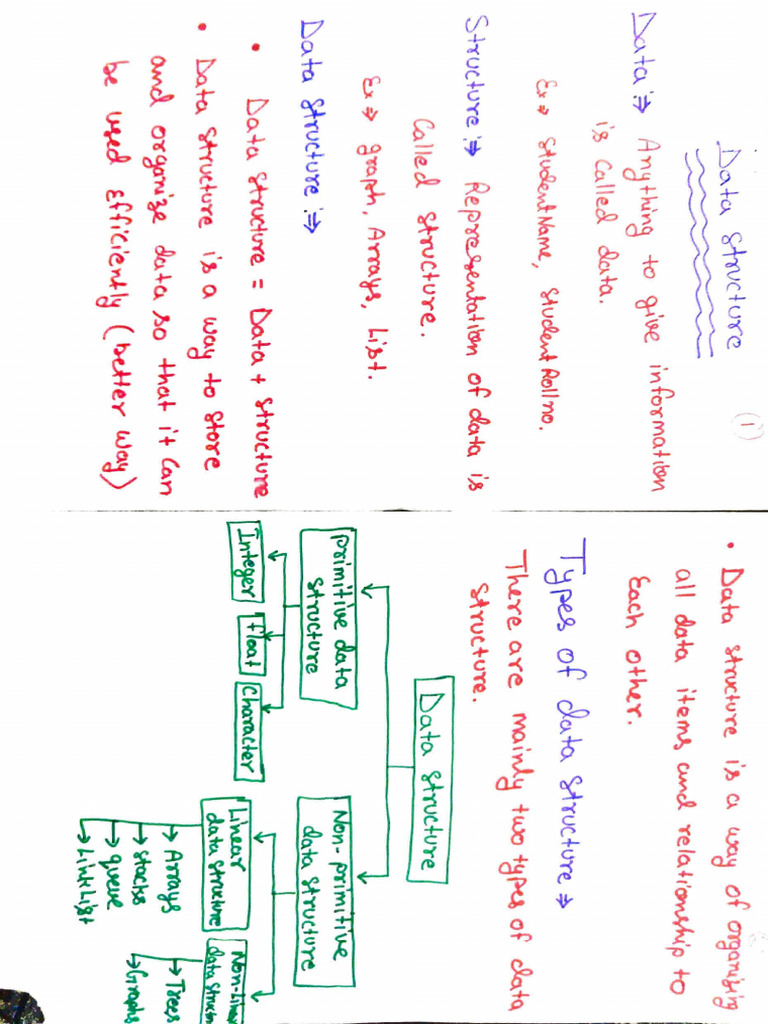 (1)
Data Structure
Data :⇒ Anything to give information
is called data.
Ex ⇒ Student Name, Student Roll no.
Structure :⇒ Representation of data is
Called structure.
Ex ⇒ graph, Arrays, List.
Data Structure :⇒
• Data structure = Data + structure
• Data structure is a way to store
and organize data so that it can
be used efficiently (better way)
• Data structure is a way of organizing
all data items and relationship to
Each other.
Types of data structure ⇒
There are mainly two types of data
structure.
Data structure
Primitive data
structure
Non-primitive
data structure
Integer
float
Character
Linear
data structure
Non-Linear
data struct
→ Arrays
→ stacks
→ queue
→ Link List
→ Trees
→ Graphs